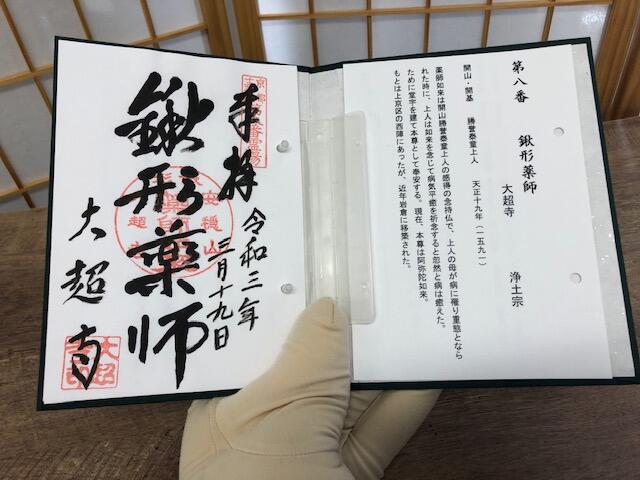 第八番 鍬形薬師
大超寺 浄土宗
開山・開基 勝誉泰童上人 天正十九年(一五九一)
薬師如来は開山勝誉泰童上人の感得の念持仏で、上人の母が病に罹り重態となら
れた時に、上人は如来を念じて病気平癒を祈念すると忽然と病は癒えた。
ために堂宇を建て本尊として奉安する。現在、本尊は阿弥陀如来。
もとは上京区の西陣にあったが、近年岩倉に移築された。
奉拝
令和三年
三月十九日
鍬形薬師
大超寺